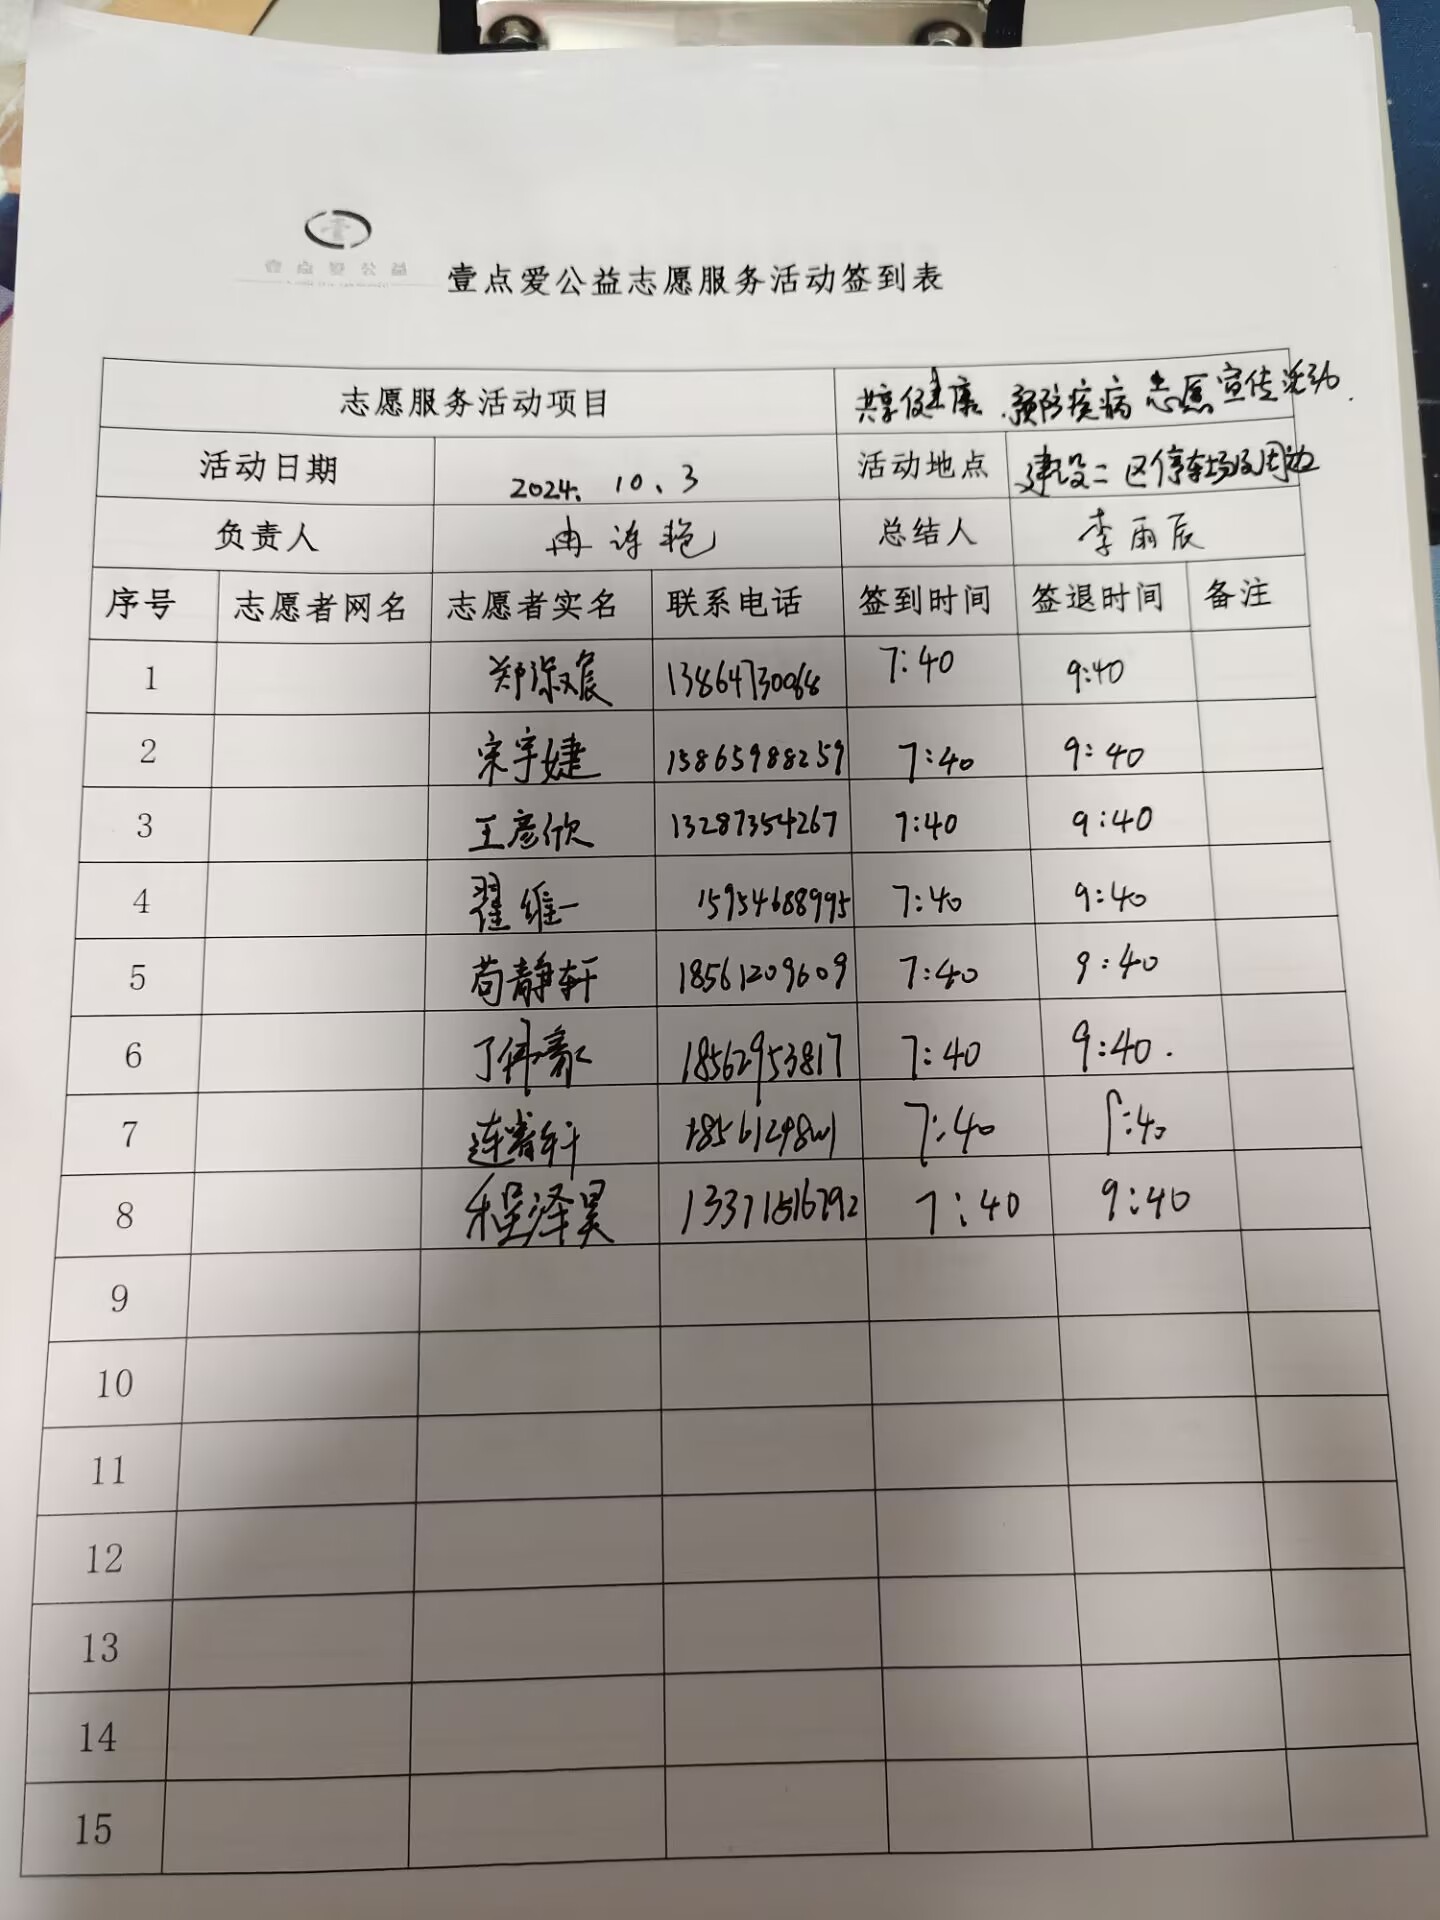 壹点爱公益
壹点爱公益志愿服务活动签到表
志愿服务活动项目 共享健康 预防疾病 志愿宣传活动.
活动日期 2024. 10. 3 活动地点 建设二区停车场及周边
负责人 冉连艳 总结人 李雨辰
序号 志愿者网名 志愿者实名 联系电话 签到时间 签退时间 备注
1 郑淑宸 7:40 9:40
2 宋宇婕 15865988259 7:40 9:40
3 王彦欣 13287354267 7:40 9:40
4 翟维一 15954688995 7:40 9:40
5 苟静轩 18561209609 7:40 9:40
6 18562953817 7:40 9:40.
7 7:40 9:40
8 程泽昊 7:40 9:40
9
10
11
12
13
14
15